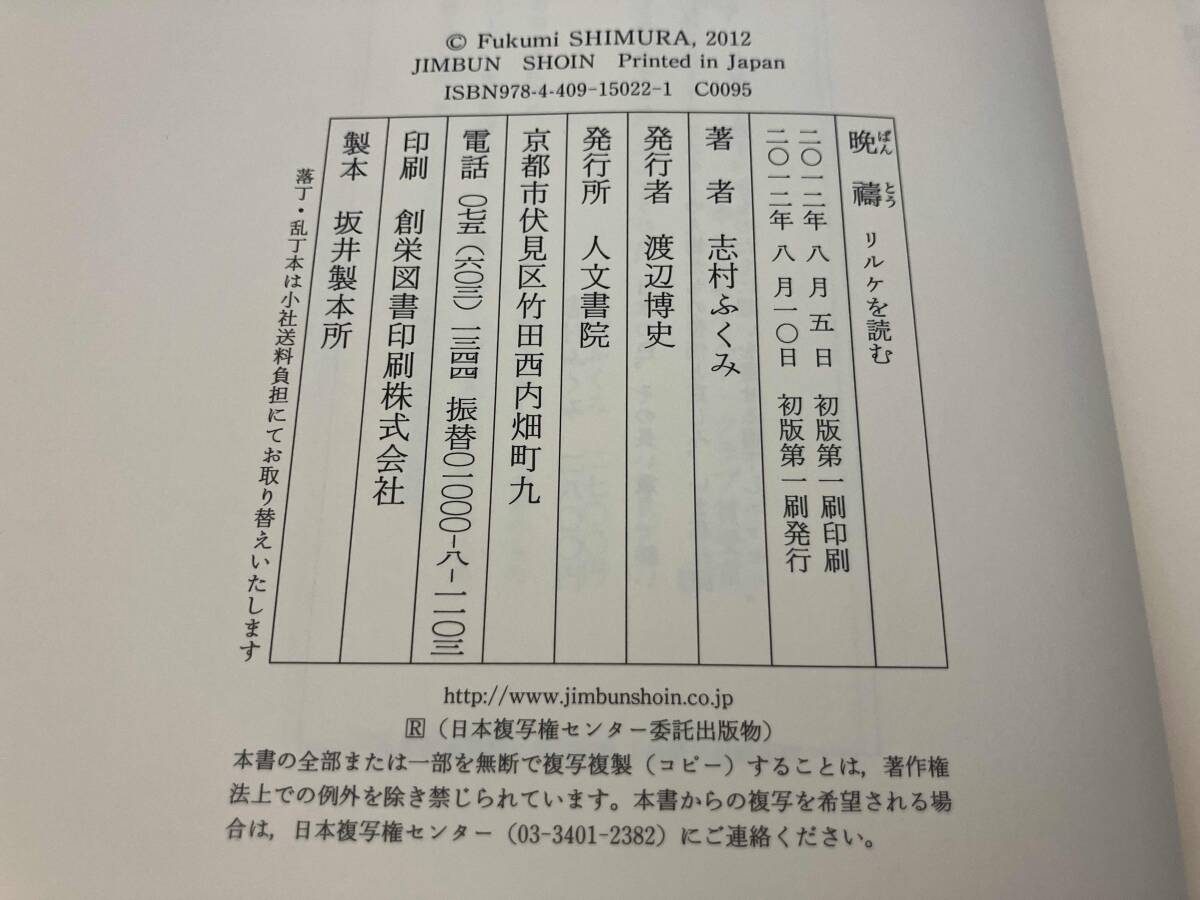 © Fukumi SHIMURA, 2012
JIMBUN SHOIN Printed in Japan
ISBN978-4-409-15022-1 C0095
晩禱 リルケを読む
ばん とう
二〇一二年 八 月 五 日 初版第一刷印刷
二〇一二年 八 月一〇日 初版第一刷発行
著 者 志村ふくみ
発行者 渡辺博史
発行所 人文書院
京都市伏見区竹田西内畑町九
電話 〇七五(六〇三)一三四四 振替〇一〇〇〇-八-一一〇三
印刷 創栄図書印刷株式会社
製本 坂井製本所
落丁・乱丁本は小社送料負担にてお取り替えいたします
http://www.jimbunshoin.co.jp
R(日本複写権センター委託出版物)
本書の全部または一部を無断で複写複製(コピー)することは,著作権
法上での例外を除き禁じられています。本書からの複写を希望される場
合は,日本複写権センター(03-3401-2382)にご連絡ください。